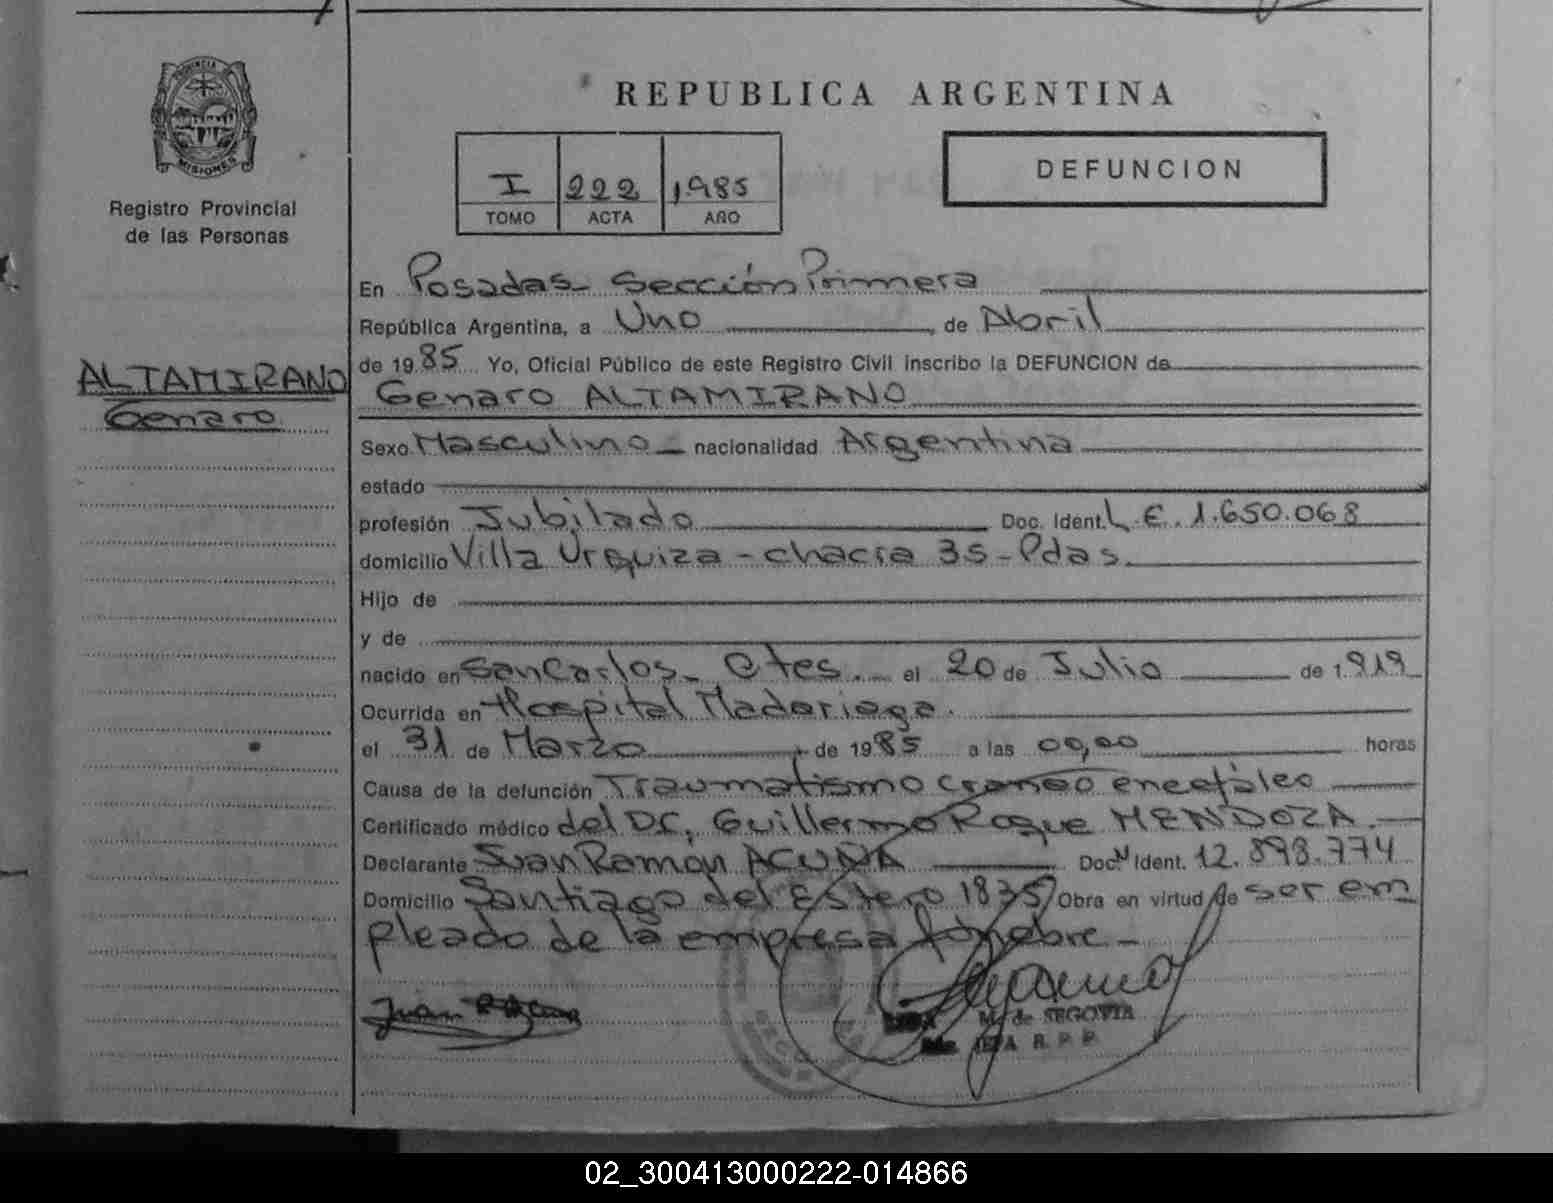 PROVINCIA
MISIONES
Registro Provincial
de las Personas
ALTAMIRANO
Genaro
REPUBLICA ARGENTINA
I 222 1.985
TOMO ACTA AÑO
DEFUNCION
En Posadas Sección Primera
República Argentina, a Uno, de Abril
de 1985 Yo, Oficial Público de este Registro Civil inscribo la DEFUNCION de
Genaro ALTAMIRANO
Sexo Masculino nacionalidad Argentina
estado
profesión Jubilado Doc. Ident. L.E. 1.650.068
domicilio Villa Urquiza - chacra 35 - Pdas.
Hijo de
y de
nacido en San Carlos - Ctes. el 20 de Julio de 1.919
Ocurrida en Hospital Madariaga.
el 31 de Marzo de 1985 a las 00,00 horas
Causa de la defunción Traumatismo craneo encefáleo
Certificado médico del Dr. Guillermo Roque MENDOZA.
Declarante Juan Ramón ACUÑA Doc. Ident. 12.898.774
Domicilio Santiago del Estero 1835 Obra en virtud de ser em
pleado de la empresa fúnebre -
Juan R Acuña
M. de SEGOVIA
R. P. P.
02_300413000222-014866